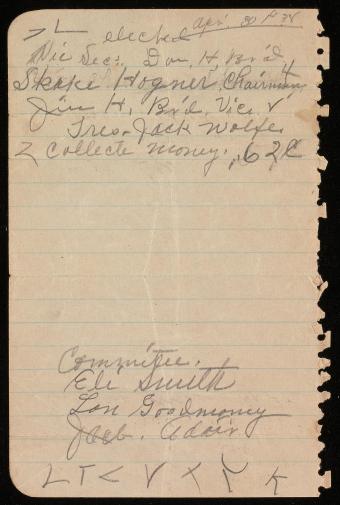 elected Apr. 30 1938
Vic Sec. Dan, H, Br'd,
Skake Hogner, Chairman,
Jim H. Br'd, Vice,
Tres. Jack Wolfe.
Collecte money. , 62¢
Committee.
Eli Smith
Lon Goodmoney
Jacb. Adair